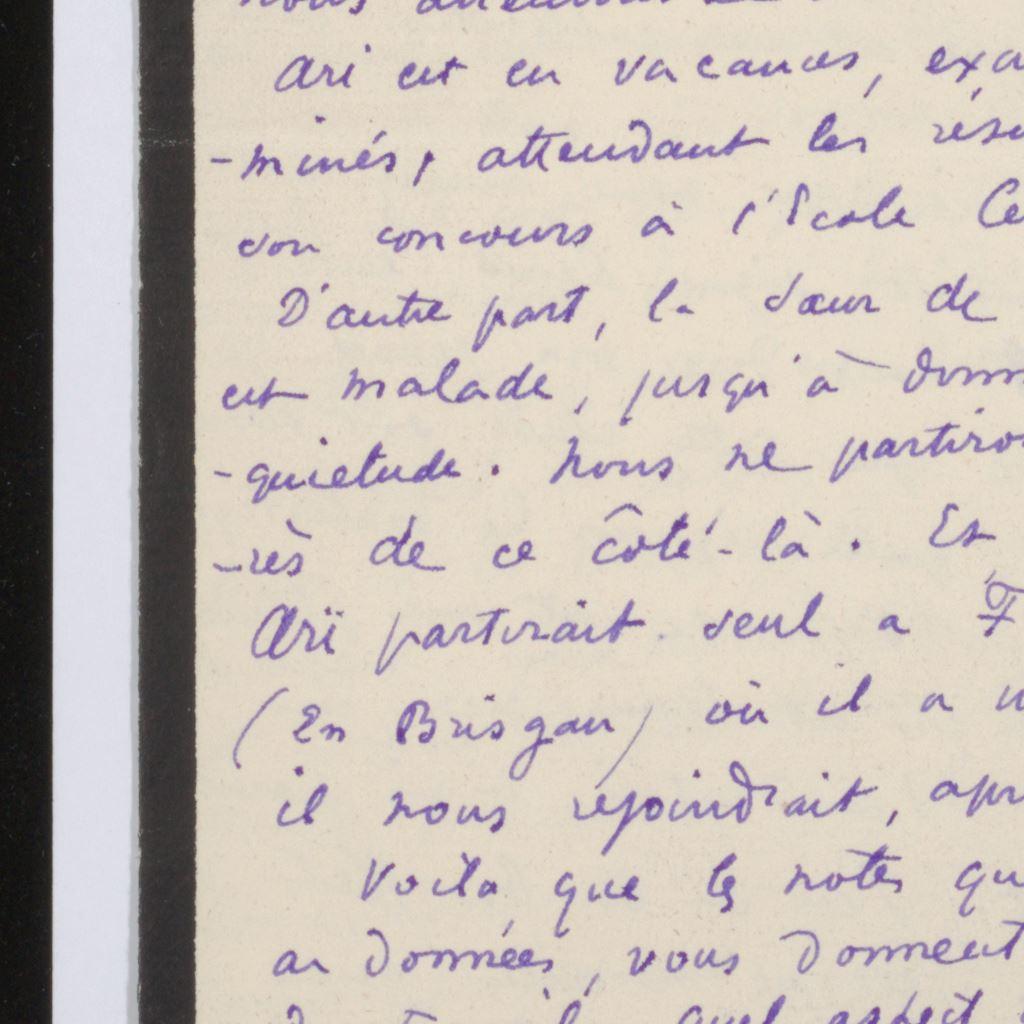 nous attendons
Ari est en vacances, exa
-minés, attendant les résu
son concours à l'École Ce
D'autre part, la sœur de
est malade, jusqu'à donn
-quietude. Nous ne partiro
-rès de ce côté-là. Et
Arï partirait seul a F
(En Brisgau) où il a u
il nous rejoindrait, apr
Voilà que les notes qu
as données, vous donnent
quel aspect